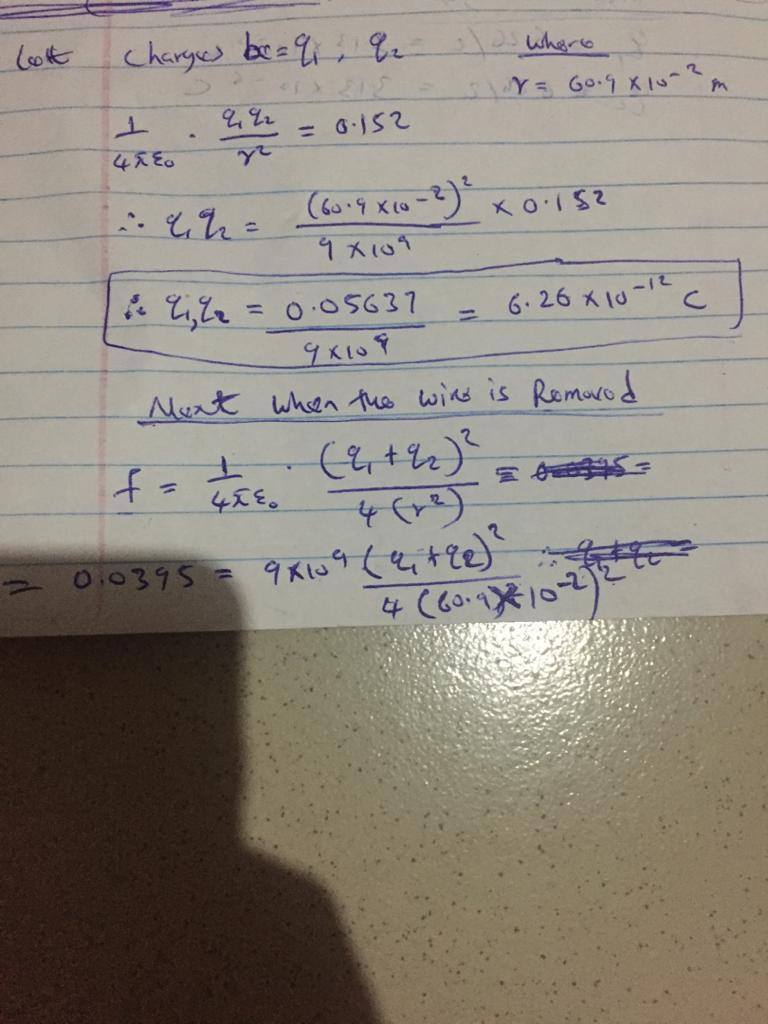 Let charges be = q₁, q₂ where
r = 60.9 × 10⁻² m
1/4πε₀ · q₁q₂/r² = 0.152
∴ q₁q₂ = (60.9 × 10⁻²)²/9 × 10⁹ × 0.152
∴ q₁,q₂ = 0.05637/9 × 10⁹ = 6.26 × 10⁻¹² C
Next when the wire is Removed
f = 1/4πε₀ · (q₁ + q₂)²/4 (r²) =
= 0.0395 = 9 × 10⁹ (q₁ + q₂)²/4 (60.9 × 10⁻²)²